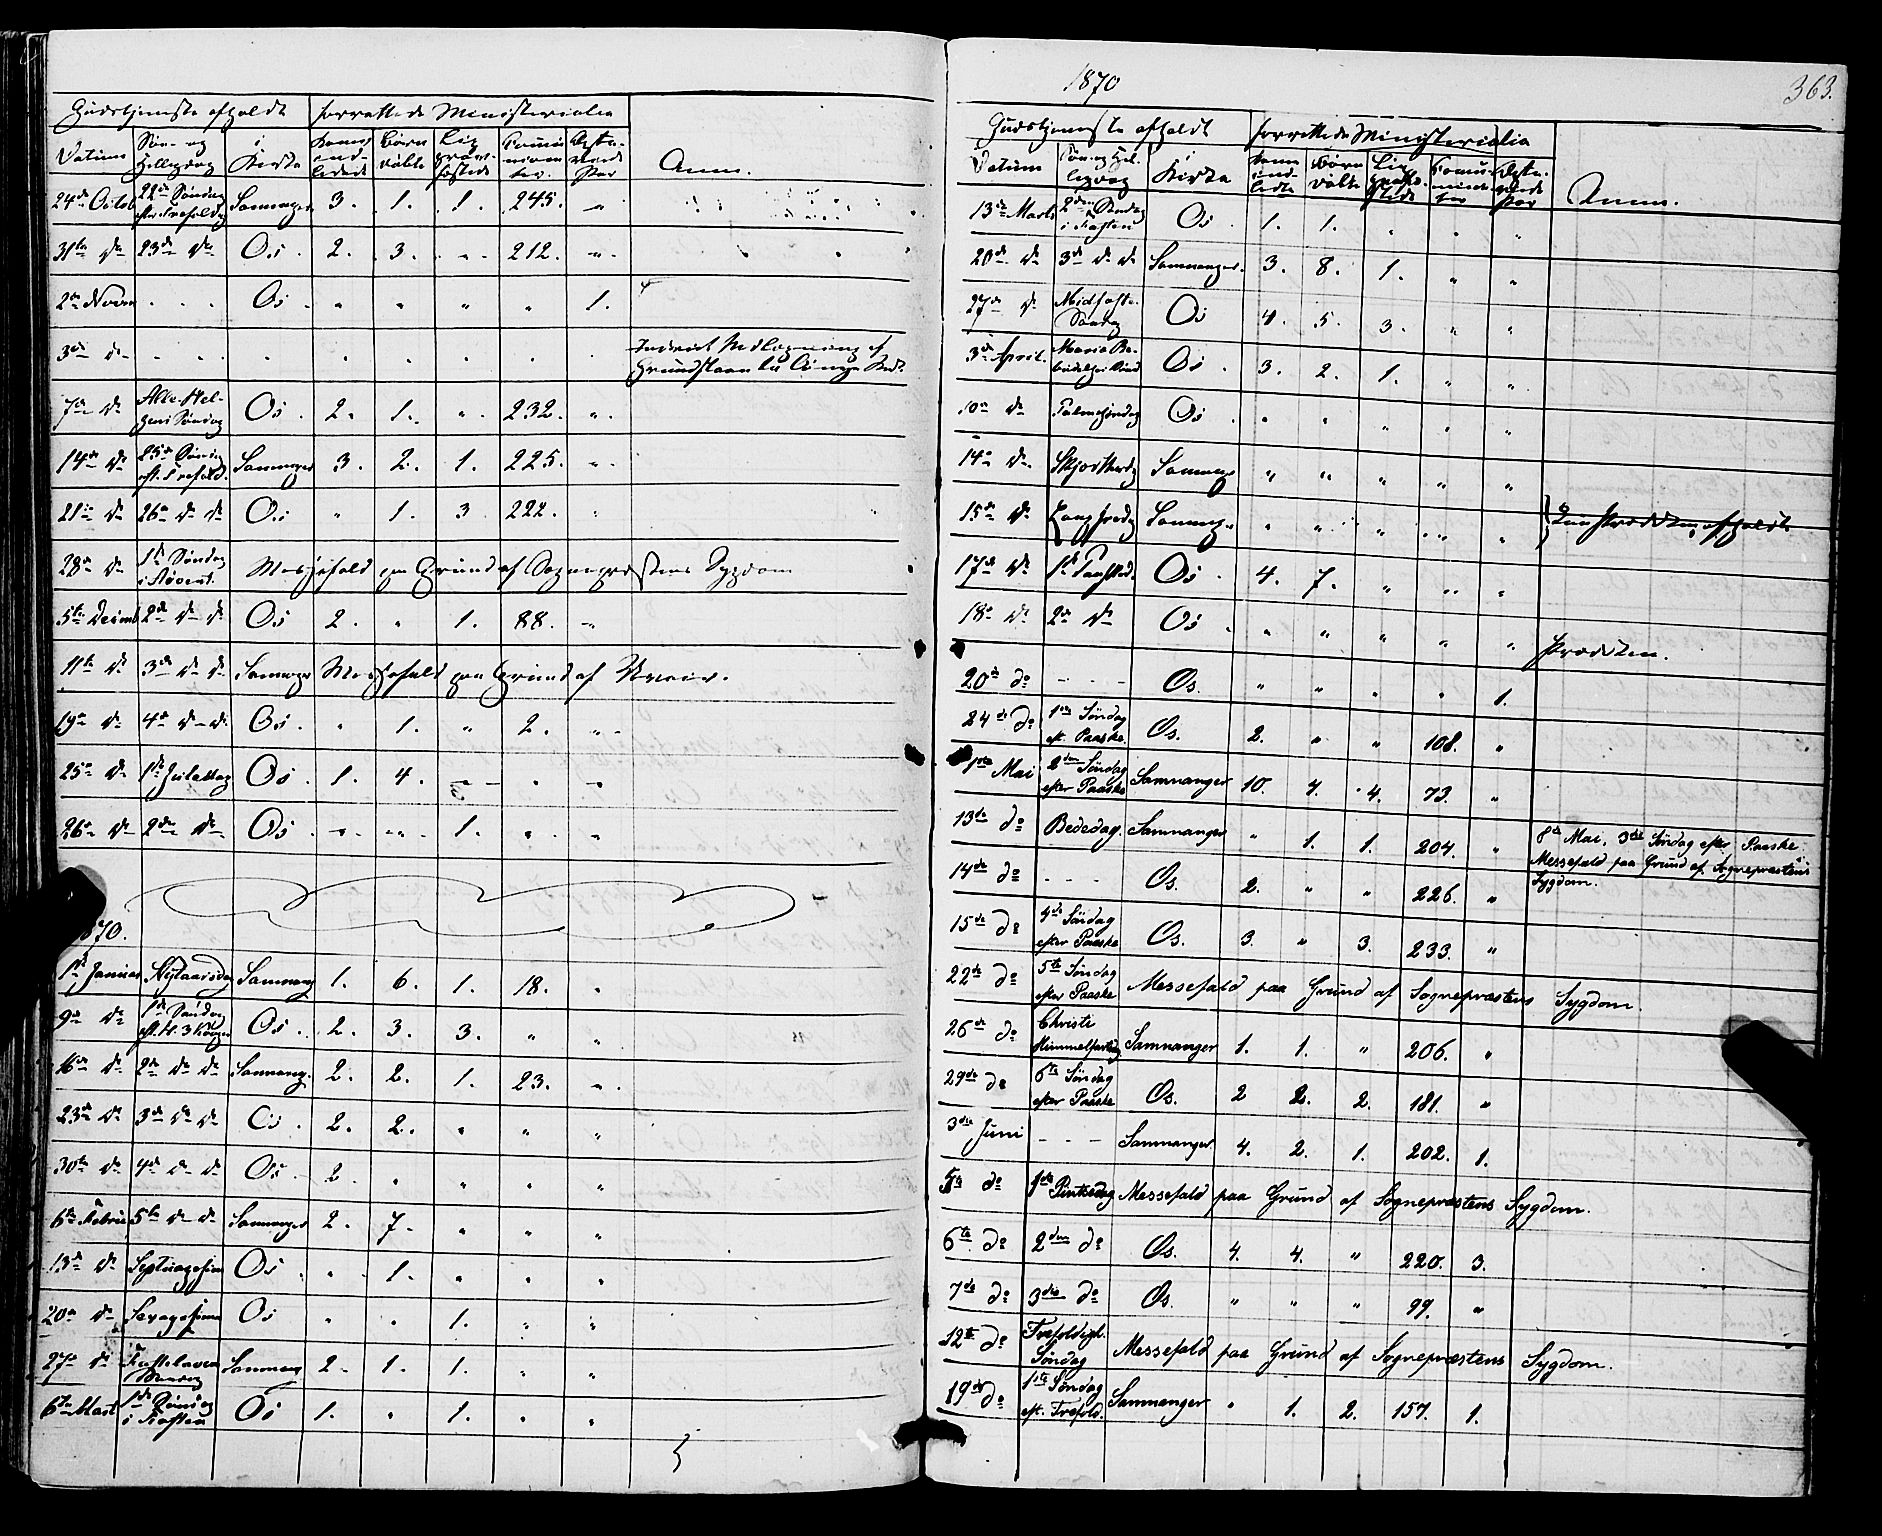 Gudstjeneste afholdt forrettede Ministerialia
Datum Søn- og Helligdag i Kirke Koner ind-ledede Børn døbte Lig graaf-fæstede Commu-nicen-ter. Ægte-viede Par Anm.
24de Octob 22de Søndag eft. Trefoldig Samnanger 3. 1. 1. 245. "
31te do 23de do Os. 2. 3. " 212. "
2den Novem - - - Os " " " " 1.
3die do - - - - - - - Grundsteen til Os nye Kirke
7de do Alle Hel-gens Søndag Os. 2. 1. " 232. "
14de do 25de Søndag eft. Trefold. Samnanger 3. 2. 1. 225. "
21de do 26de do do Os " 1. 3. 222. "
28de do 1ste Søndag i Advent. Messefald paa Grund af Sognepræstens Sygdom
5te Decemb 2den do do Os 2. " 1. 88. "
11te do 3die do do Samnanger Messefald paa Grund af Uveir.
19de do 4de do do Os. " 1. " 2. "
25de do 1ste Juledag Os. 1. 4. " " "
26de do 2den do Os. " " 1. " "
1870.
1ste Januar Nytaarsdag Samnang 1. 6. 1. 18. "
9de do 1ste Søndag eft. H. 3 Konger Os. 2. 3. 3. " "
16de do 2den do do Samnang. 2. 2. 1. 23. "
23de do 3die do do Os. 2. 2. " " "
30te do 4de do do Os. 2. " " " "
6te Februar 5te do do Samnanger 2. 7. " " "
13de do Septuagesima Os. " 1. " " "
20de do Sexagesima Os " " 1. " "
27de do Fastelavns Søndag Samnang 2. 1. 1. " "
6te Mart 1ste Søndag i Fasten Os 1. " 1. " "
1870
363.
Gudstjeneste afholdt forrettede Ministerialia
Datum Søn og Hel-ligdag Kirke Koner ind-ledte Børn døbte Lig graafæ-stede Commu-nicen-ter Ægte-viede Par Anm.
13de Marts 2den Søndag i Fasten Os 1. 1. " " "
20de do 3die do do Samnanger. 3. 8. 1. " "
27de do Midfaste-Søndag Os 4. 5. 3. " "
3die April. Maria Be-budelses Sønd Os. 3. 2. 1. " "
10de do Palmesøndag Os. " " " " "
14de do. Skjærthorsdg Samnang " " " " "
15de do Langfredag Samnang. " " " " "
17de do 1ste Paaskedag. Os. 4. 7. " " "
18de do 2den do Os. " " " " " Provsten.
20de do - - - Os. " " " " 1.
24de do 1ste Søndag eft. Paaske. Os. 2. " " 108. "
1ste Mai 2den Søndag efter Paaske Samnanger 10. 4. 4. 73. "
13de do Bededag. Samnanger " 1. 1. 204. " 8de Mai, 3die Søndag efter Paaske, Messefald paa Grund af Sognepræstens Sygdom.
14de do - - - Os. 2. " " 226. "
15de do 4de Søndag efter Paaske Os. 3. " 3. 233. "
22de do 5te Søndag efter Paaske Messefald paa Grund af Sognepræstens Sygdom.
26de do Christi Himmelfartsdag Samnanger 1. 1. " 206. "
29de do 6te Søndag efter Paaske Os. 2 2. 2. 181. "
3die Juni - - - Samnanger 4. 2. 1. 202. 1.
5te do 1ste Pintsedag Messefald paa Grund af Sognepræstens Sygdom.
6te do 2den do Os. 4. 4. " 220. 3.
7de do 3die do Os. " " " 99. "
12te do Trefoldigh. Søndag Messefald paa Grund af Sognepræstens Sygdom.
19de do 1ste Søndag eft. Trefold. Samnanger " 1. 2. 157. 1.